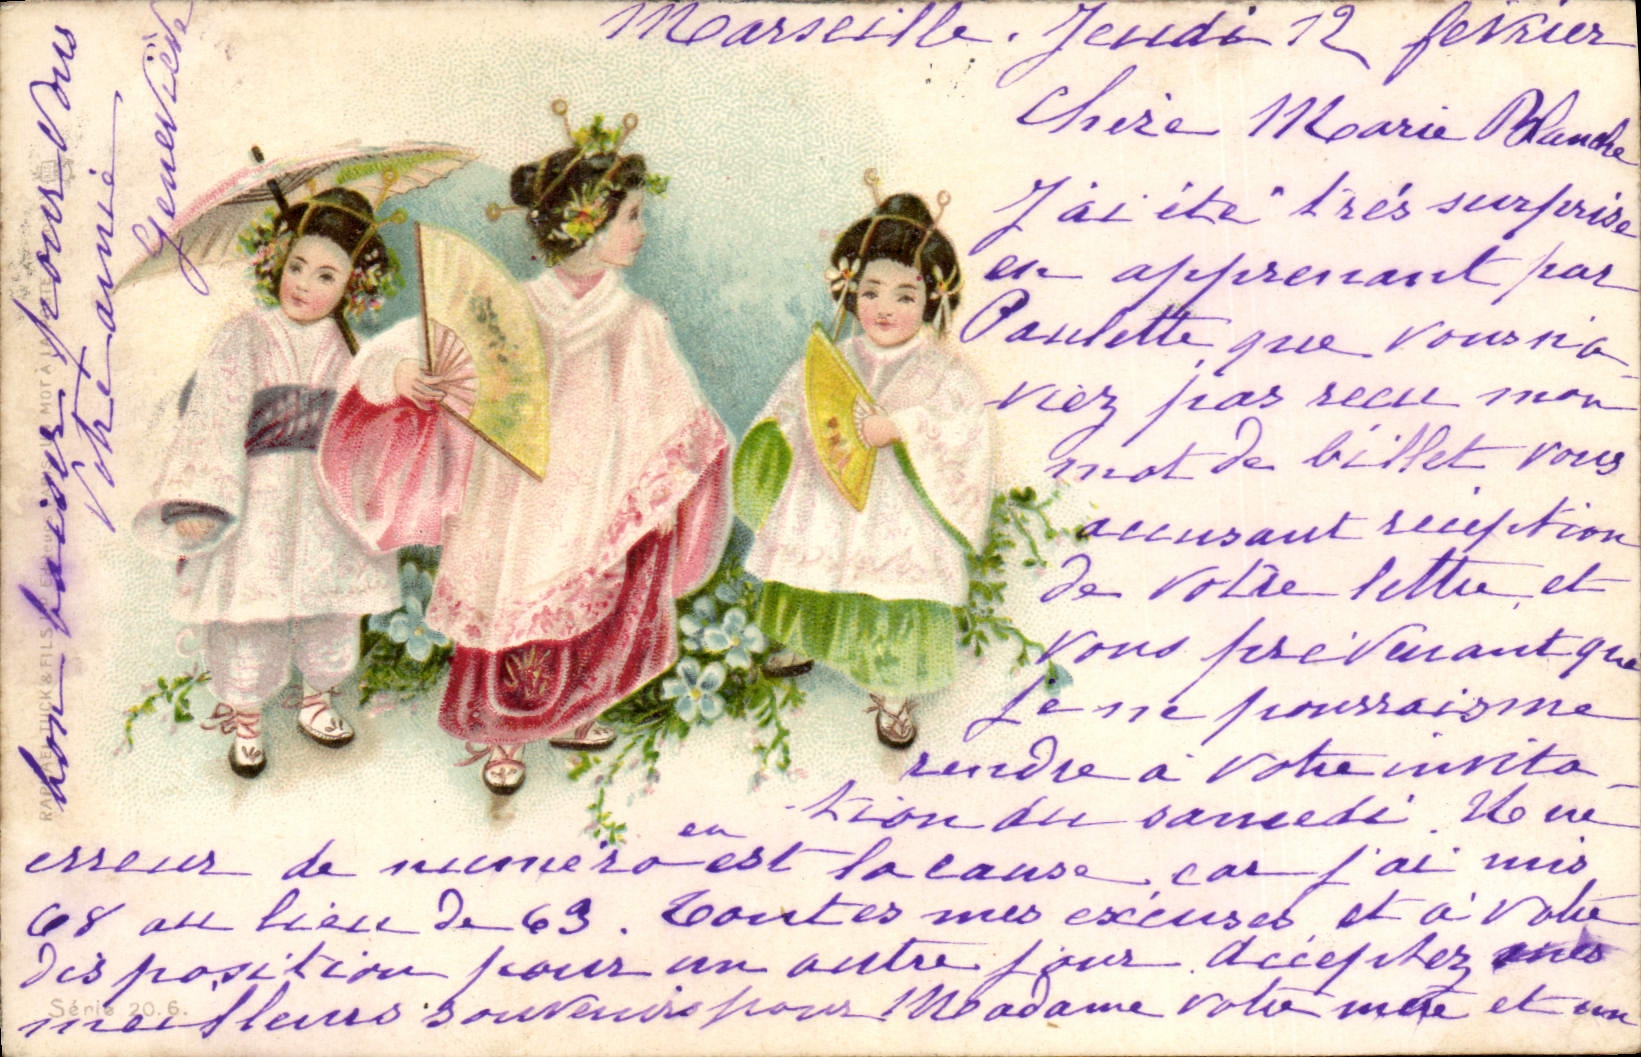 Marseille. Jeudi 12 février
Chère Marie Blanche
J'ai été très surprise
en apprenant par
Paulette, que vous n'a
viez pas recu mon
mot de billet vous
accusant réception
de votre lettre, et
vous prévenant que
je ne pourrais me
rendre à votre invita-
tion du samedi. Une
erreur de numero en est la cause, car j'ai mis
68 au lieu de 63. Toutes mes excuses et à votre
disposition pour un autre jour. Acceptez mes
meilleurs souvenirs pour Madame votre mère et un
bon baiser pour vous
Votre amie
Geneviève
RAPHAEL TUCK & FILS
MOT À LA POSTE
Série 20.6.